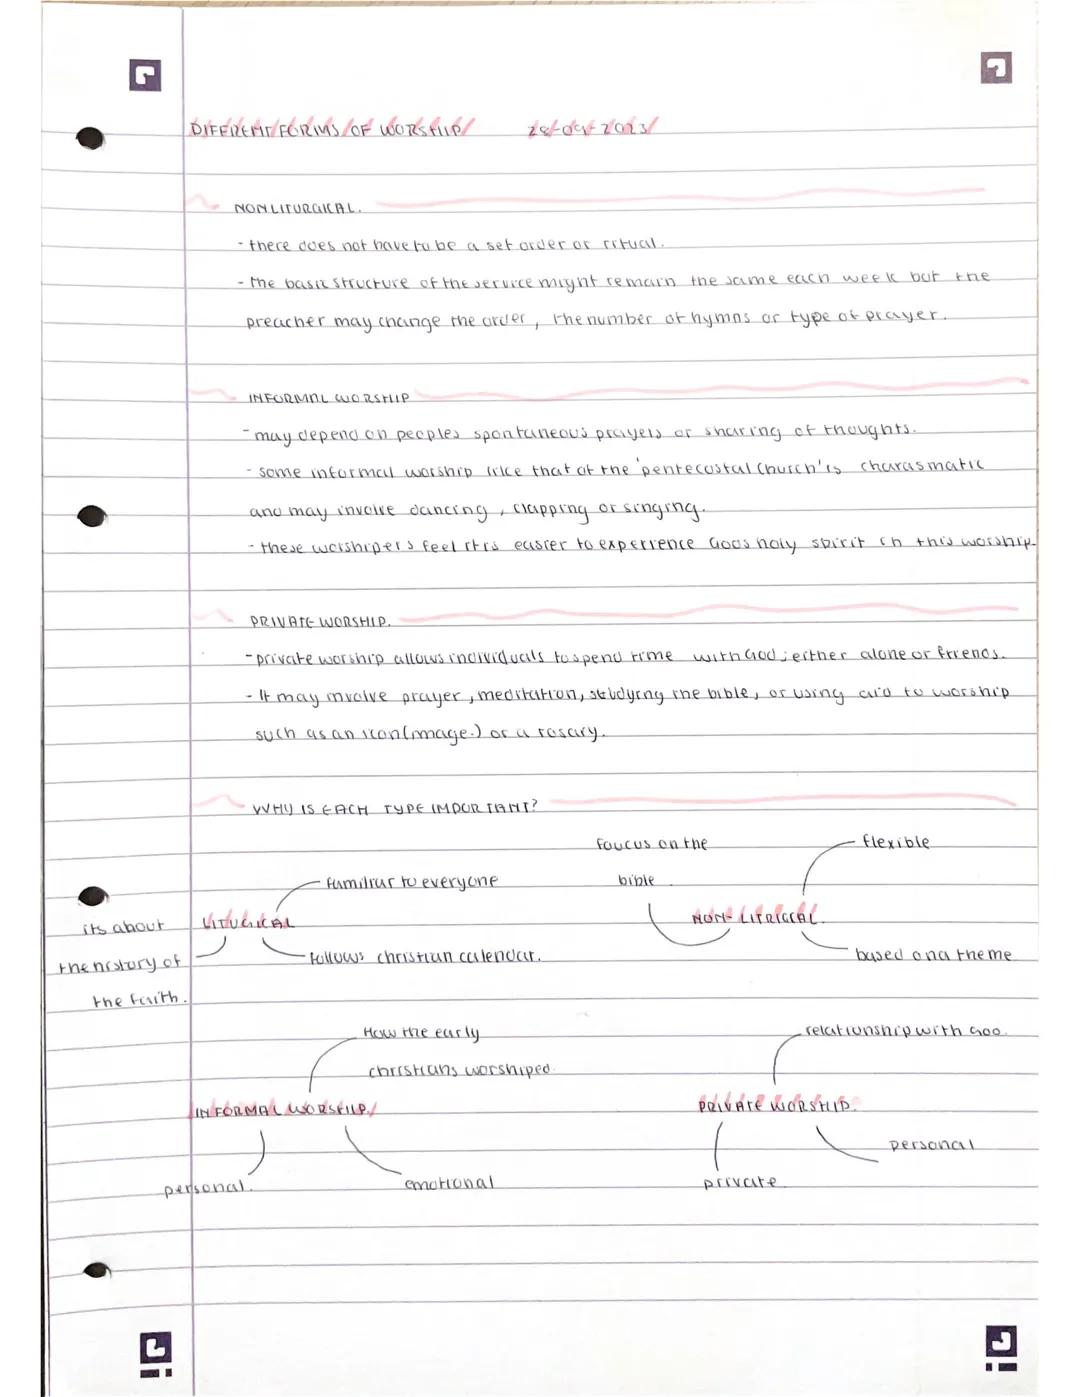 DIFFERENT FORMS OF WORSHIP 28-09-2023
NONLITURGICAL.
- there does not have to be a set order or ritual.
- the basic structure of the service might remain the same each week but the
preacher may change the order, the number of hymns or type of prayer.
INFORMAL WORSHIP
- may depend on peoples spontaneous prayers or sharing of thoughts.
- some informal worship like that of the 'pentecostal church' is charasmatic
and may involve dancing, clapping or singing.
- these worshipers feel it is easier to experience Gods holy spirit in this worship.
PRIVATE WORSHIP.
- private worship allows individuals to spend time with God; either alone or friends.
- It may involve prayer, meditation, studying the bible, or using aid to worship
such as an icon (image.) or a rosary.
WHY IS EACH TYPE IMPORTANT?
foucus on the
bible
flexible
familiar to everyone
its about
the history of
the faith.
LITUGICAL
NON-LITRIGCAL.
follows christian calendar.
based on a theme
How the early
christians worshiped
relationship with God.
INFORMAL WORSHIP
PRIVATE WORSHIP.
personal
personal.
emotional
private